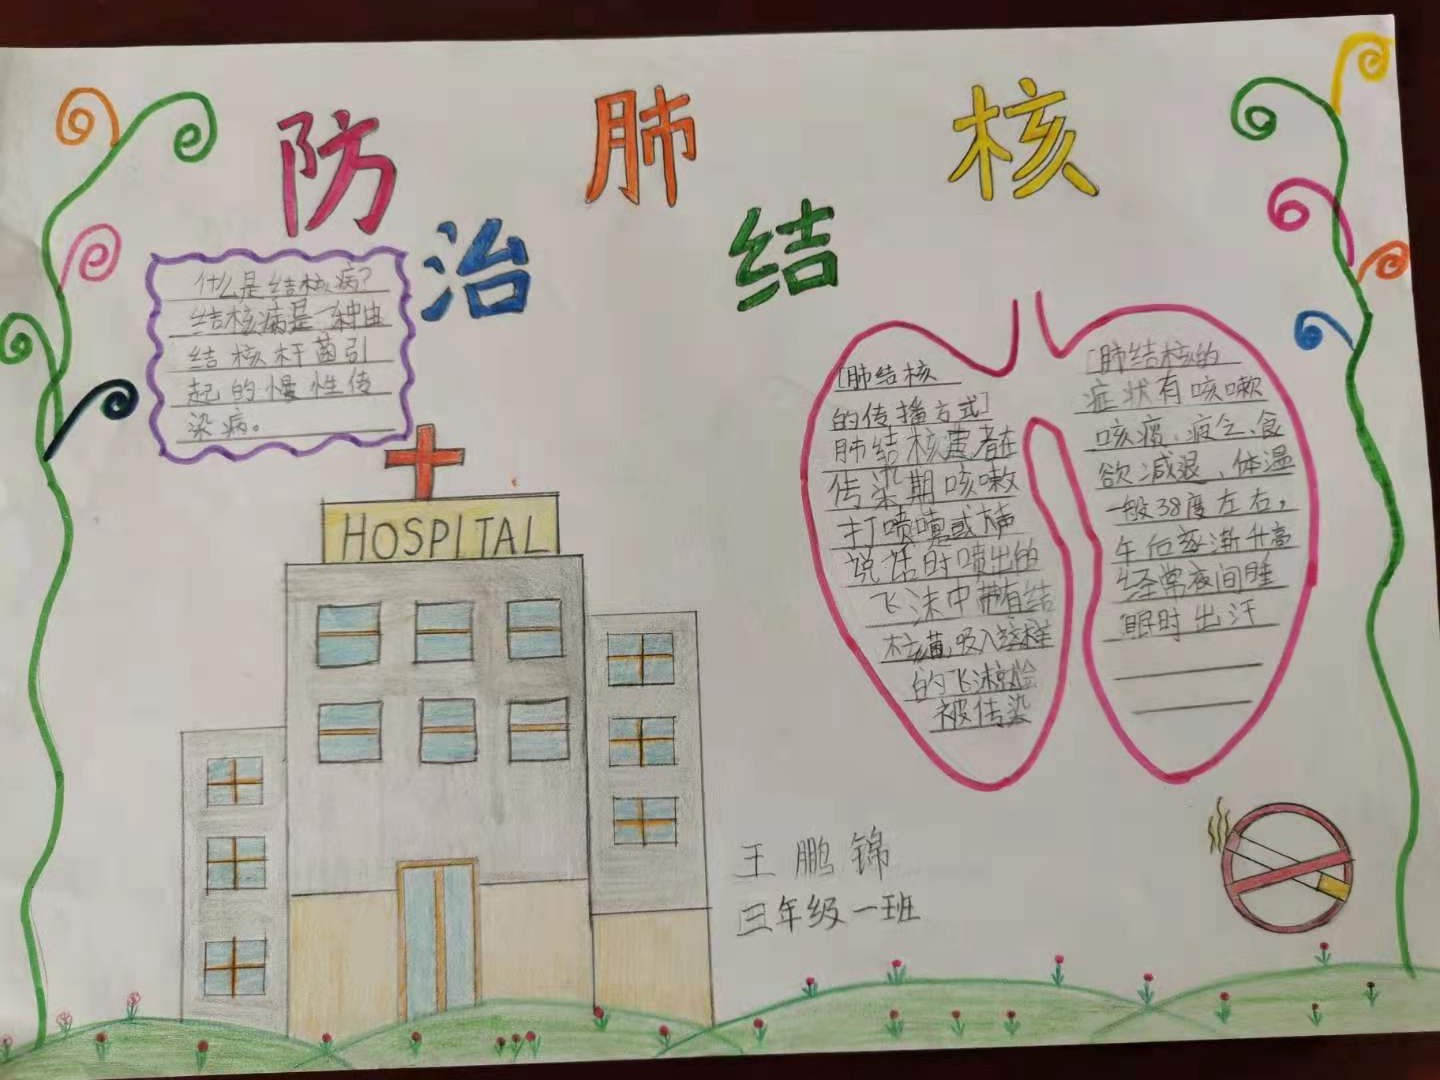 防治肺结核
什么是结核病?
结核病是一种由
结核杆菌引
起的慢性传
染病。
HOSPITAL
[肺结核
的传播方式]
肺结核患者在
传染期咳嗽
打喷嚏或大声
说话时喷出的
飞沫中带有结
核菌,吸入
的飞沫就会
被传染
[肺结核的
症状有咳嗽
咳痰、疲乏、食
欲减退、体温
一般38度左右,
午后逐渐升高
经常夜间睡
眠时出汗
王鹏锦
三年级一班